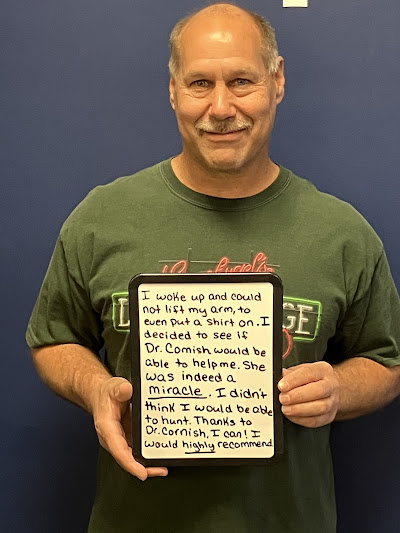 I woke up and could
not lift my arm, to
even put a shirt on. I
decided to see if
Dr. Cornish would be
able to help me. She
was indeed a
miracle. I didn't
think I would be able
to hunt. Thanks to
Dr. Cornish, I can! I
would highly recommend